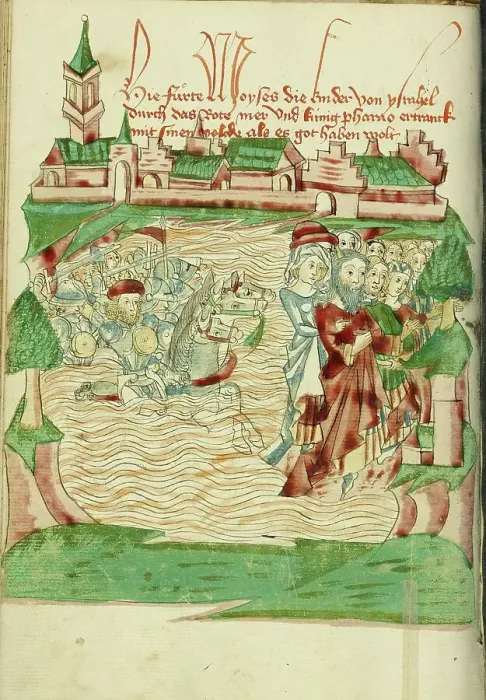 Hie fürte Moyses die kinder von ysrahel
durch das Rote mer Vnd künig pharao ertranck
mit sinen volcke als es got haben wolt